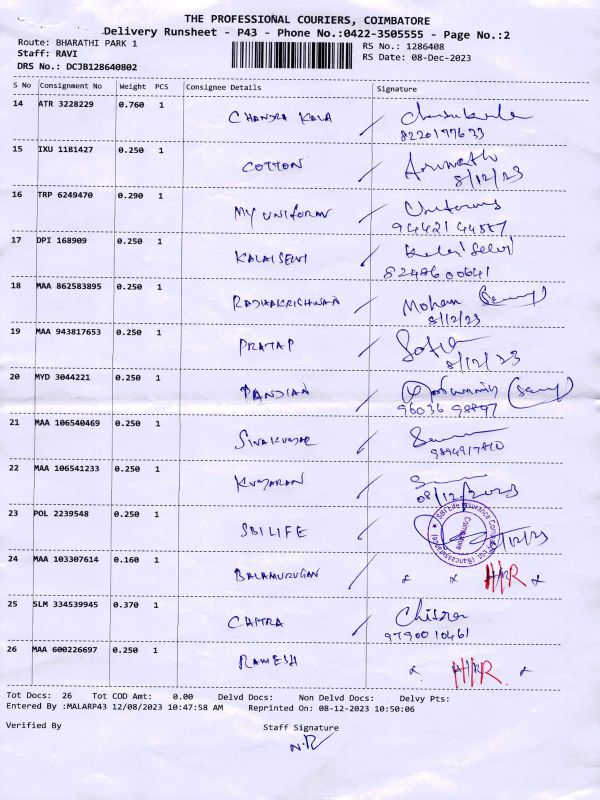 THE PROFESSIONAL COURIERS, COIMBATORE
Delivery Runsheet - P43 - Phone No.:0422-3505555 - Page No.:2
Route: BHARATHI PARK 1 RS No.: 1286408
Staff: RAVI RS Date: 08-Dec-2023
DRS No.: DCJB128640802
S No Consignment No Weight PCS Consignee Details Signature
14 ATR 3228229 0.760 1 CHANDRA KALA
15 IXU 1181427 0.250 1 COTTON
8/12/23
16 TRP 6249470 0.290 1 MY UNIFORM Uniforms
17 DPI 168909 0.250 1 KALAISELVI Kalai Selvi
8248600641
18 MAA 862583895 0.250 1 RADHAKRISHNAN Mohan
8/12/23
19 MAA 943817653 0.250 1 PRATAP
8/12/23
20 MYD 3044221 0.250 1 PANDIAN
21 MAA 106540469 0.250 1 SIVAKUMAR
22 MAA 106541233 0.250 1 KUMARAN
08/12/2023
23 POL 2239548 0.250 1 SBI LIFE
24 MAA 103307614 0.160 1 BALAMURUGAN
25 SLM 334539945 0.370 1 CHITRA Chitra
9790010461
26 MAA 600226697 0.250 1 RAMESH
Tot Docs: 26 Tot COD Amt: 0.00 Delvd Docs: Non Delvd Docs: Delvy Pts:
Entered By :MALARP43 12/08/2023 10:47:58 AM Reprinted On: 08-12-2023 10:50:06
Verified By Staff Signature
N.R